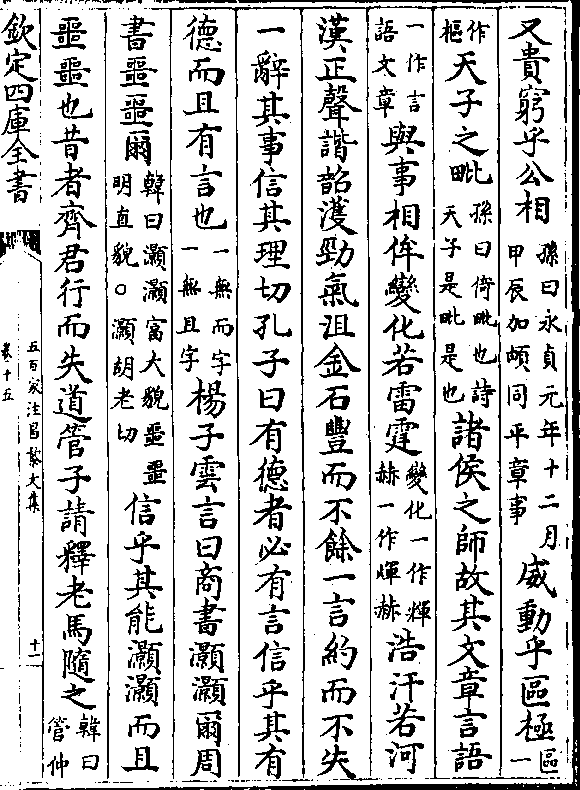 又貴窮乎公相孫曰永貞元年十二月甲辰加頔同平章事威動乎區極區一
作樞天子之毗孫曰倚毗也詩天子是毗是也諸侯之師故其文章言語
一作言語文章與事相侔變化若雷霆變化一作輝赫一作煇赫浩汗若河
漢正聲諧韶濩勁氣沮金石豐而不餘一言約而不失
一辭其事信其理切孔子曰有德者必有言信乎其有
德而且有言也一無而字一無且字楊子雲言曰商書灝灝爾周
書噩噩爾韓曰灝灝富大貌噩噩明直貌○灝胡老切信乎其能灝灝而且
噩噩也昔者齊君行而失道管子請釋老馬隨之韓曰管仲
欽定四庫全書
五百家注昌黎文集
卷十五
十一